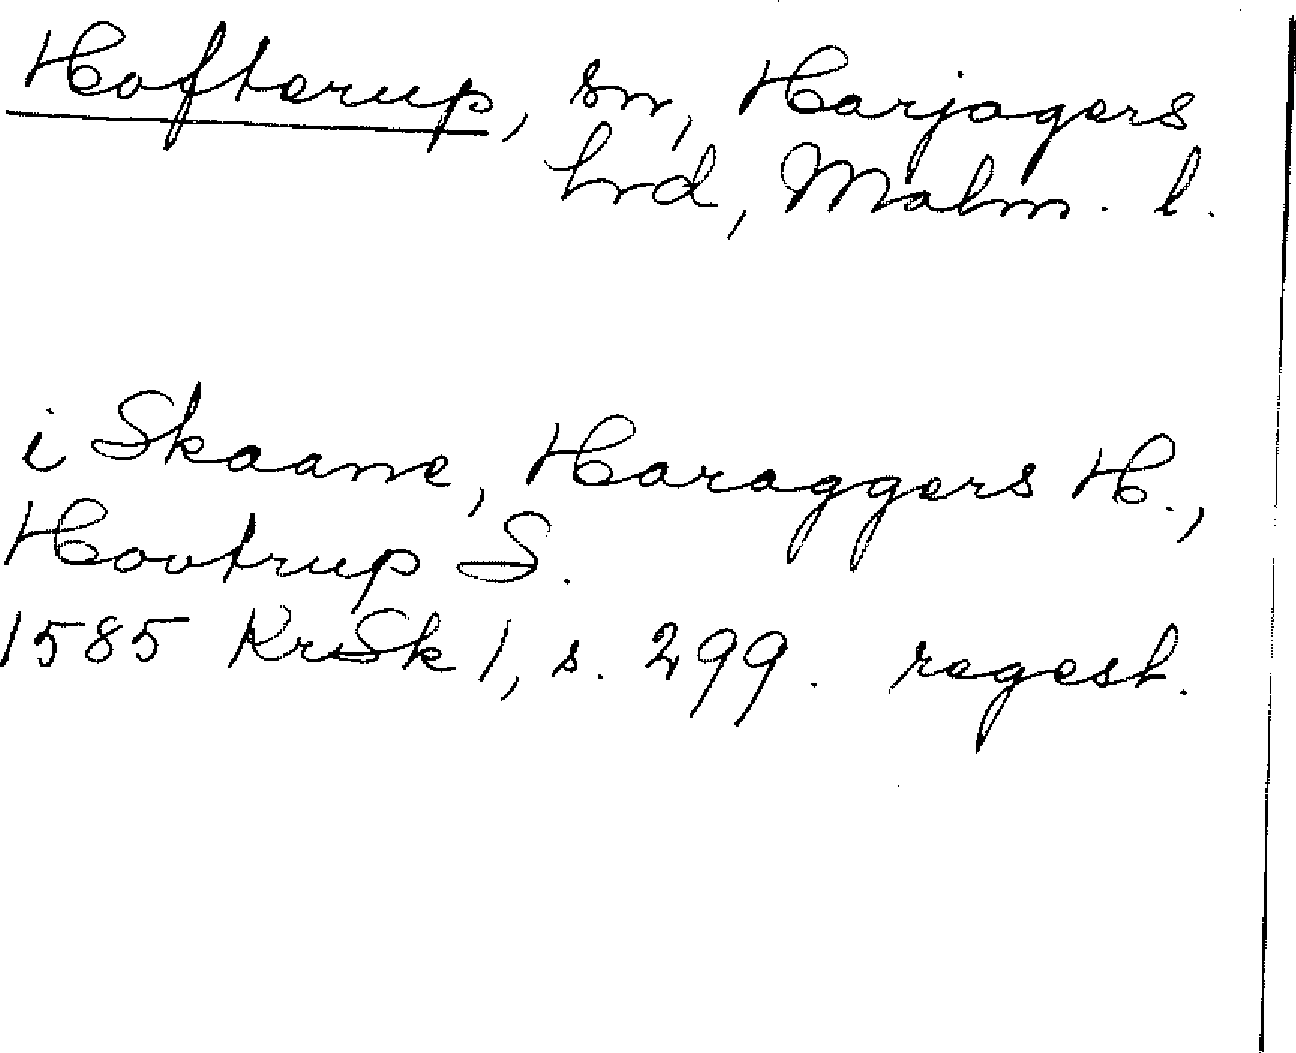 Hofterup, sn, Harjagers
hrd, Malm. l.
i Skaane, Haraggers H.,
Hovtrup S.
1585 KrSk 1, s. 299. regest.